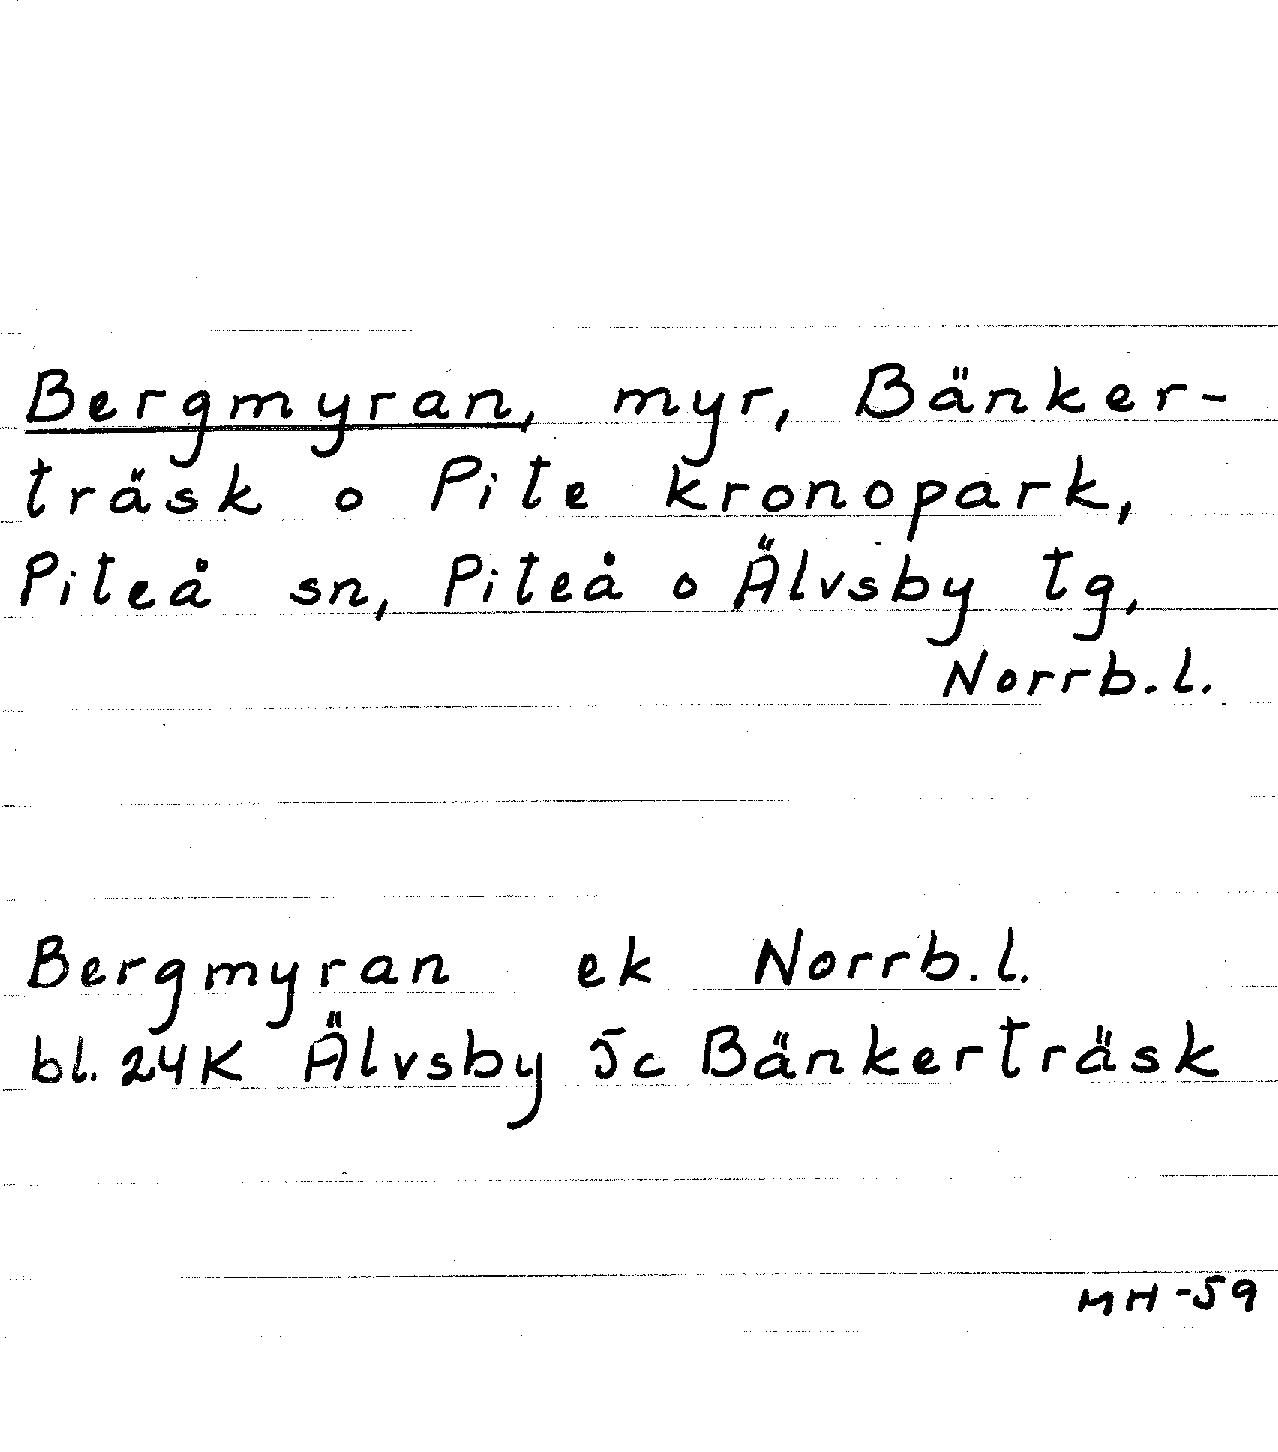 Bergmyran, myr, Bänker-
träsk o Pite kronopark,
Piteå sn, Piteå o Älvsby tg,
Norrb.l.
Bergmyran ek Norrb.l.
bl. 24K Älvsby 5c Bänkerträsk
MH-59